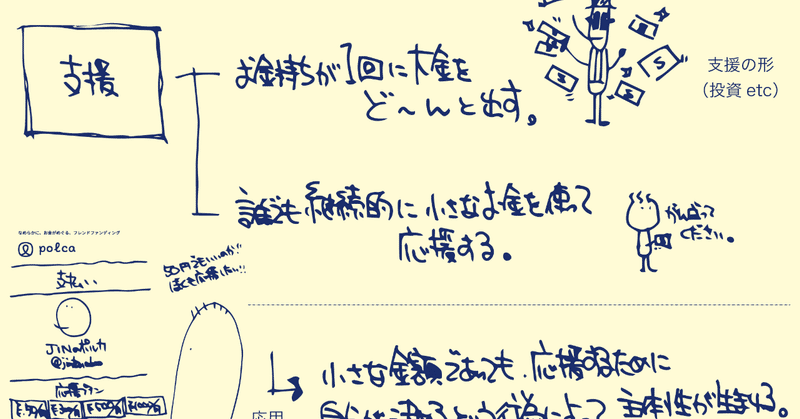 支援
お金持ちが1回に大金を
ど〜んと出す。
支援の形
（投資 etc）
誰でも継続的に小さなお金を使って
応援する。
がんばって
ください。
なめらかに、お金がめぐる。フレンドファンディング
polca
支払い
JINのポルカ
応援プラン
50円でもいいのか!!
ぼくも応援したい!!
小さな金額であっても、応援するために
応用
という行為によって主体性が生きる。